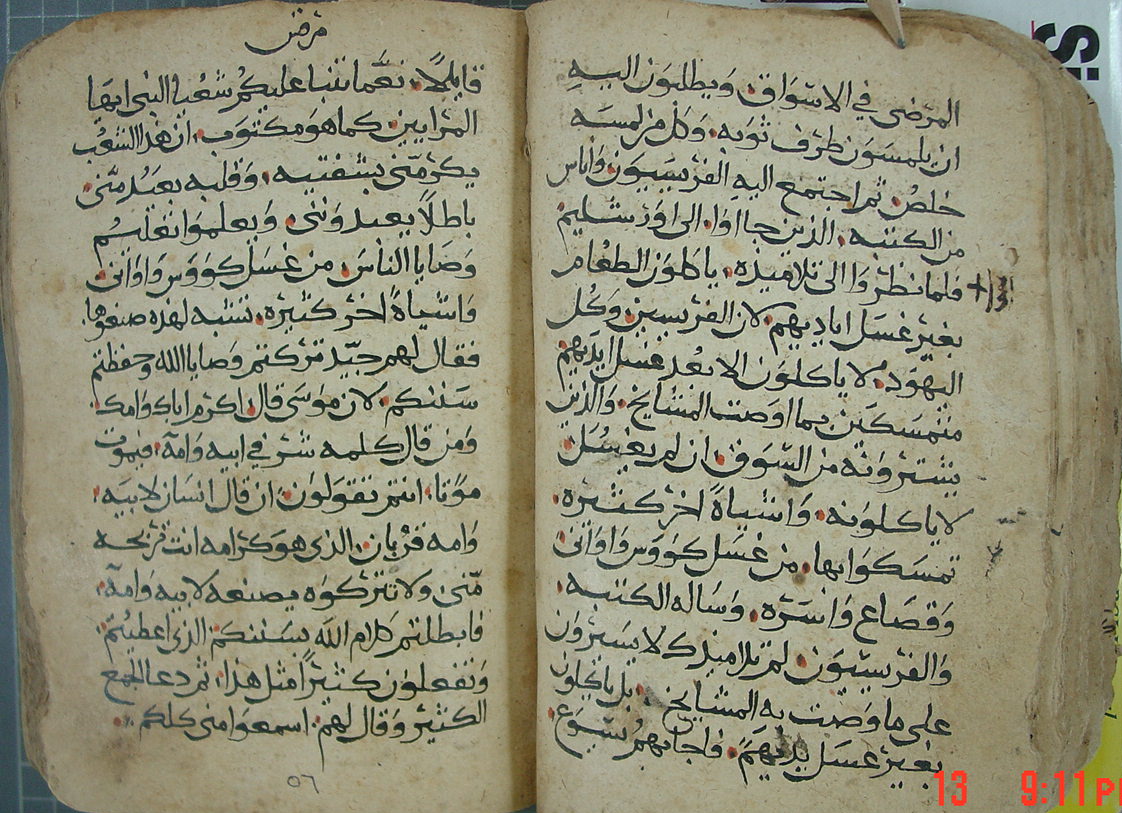 المرضى في الاسواق. ويطلبون اليه
ان يلمسون طرف ثوبه. وكل من لمسه
خلص. ثم اجتمع اليه الفريسيون واناس
من الكتبه. الذين جااوا. الى اورشليم
فلما نظروا الى تلاميذه. ياكلون الطعام
بغير غسل اياديهم. لان الفريسين وكل
اليهود. لا ياكلون الا بعد غسل ايديهم
متمسكين بما اوصت المشايخ. والذين
يشتروانه من السوق. ان لم يغسل.
لا ياكلونه. واشياة اخر كثيره.
تمسكوا بها. من غسل كووس واواني
وقصاع واسره. وساله الكتبه.
والفريسيون. لم تلاميذك لا يسيرون
على ما وصت به المشايخ. بل ياكلون
بغير غسل يديهم. فاجابهم يسوع
مرض
قايلا. نعما تنبا عليكم شعيا النبي ايها
المرايين. كما هو مكتوب. ان هذا الشعب
يكرمني بشفتيه. وقلبه بعيد مني.
باطلا يعبدونني. ويعلموا تعليم
وصايا الناس. من غسل كووس واواني.
واشياة اخر كثيره. تشبه لهذه صنعوها.
فقال لهم جيد تركتم وصايا الله وحفظتم
سننكم. لان موسى قال. اكرم اباك وامك
ومن قال كلمه شر في ابيه وامه. فيموت
موتا. انتم تقولون. ان قال انسان لابيه.
وامه قربان. الذي هو كرامه انت تربحه
مني ولا تتركوه يصنعه لابيه وامه.
فابطلتم كلام الله بسننكم. الذي اعطيتم.
وتفعلون كثيرا مثل هذا. ثم دعا الجمع
الكثير وقال لهم. اسمعوا مني كلكم.
٥٦
13 9:11